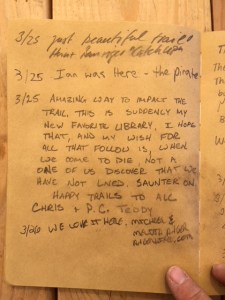 3/25 Just beautiful trails
3/25 Ian was Here - the
3/25 AMAZING WAY TO IMPACT THE
TRAIL, THIS IS SUDDENLY MY
NEW FAVORITE LIBRARY, I HOPE
THAT, AND MY WISH FOR
ALL THAT FOLLOW IS, WHEN
WE COME TO DIE NOT A
ONE OF US DISCOVER THAT WE
HAVE NOT LIVED. SAUNTER ON
HAPPY TRAILS TO ALL
CHRIS & P.C. TEDDY
3/26 WE LOVE IT HERE, MICHAEL &